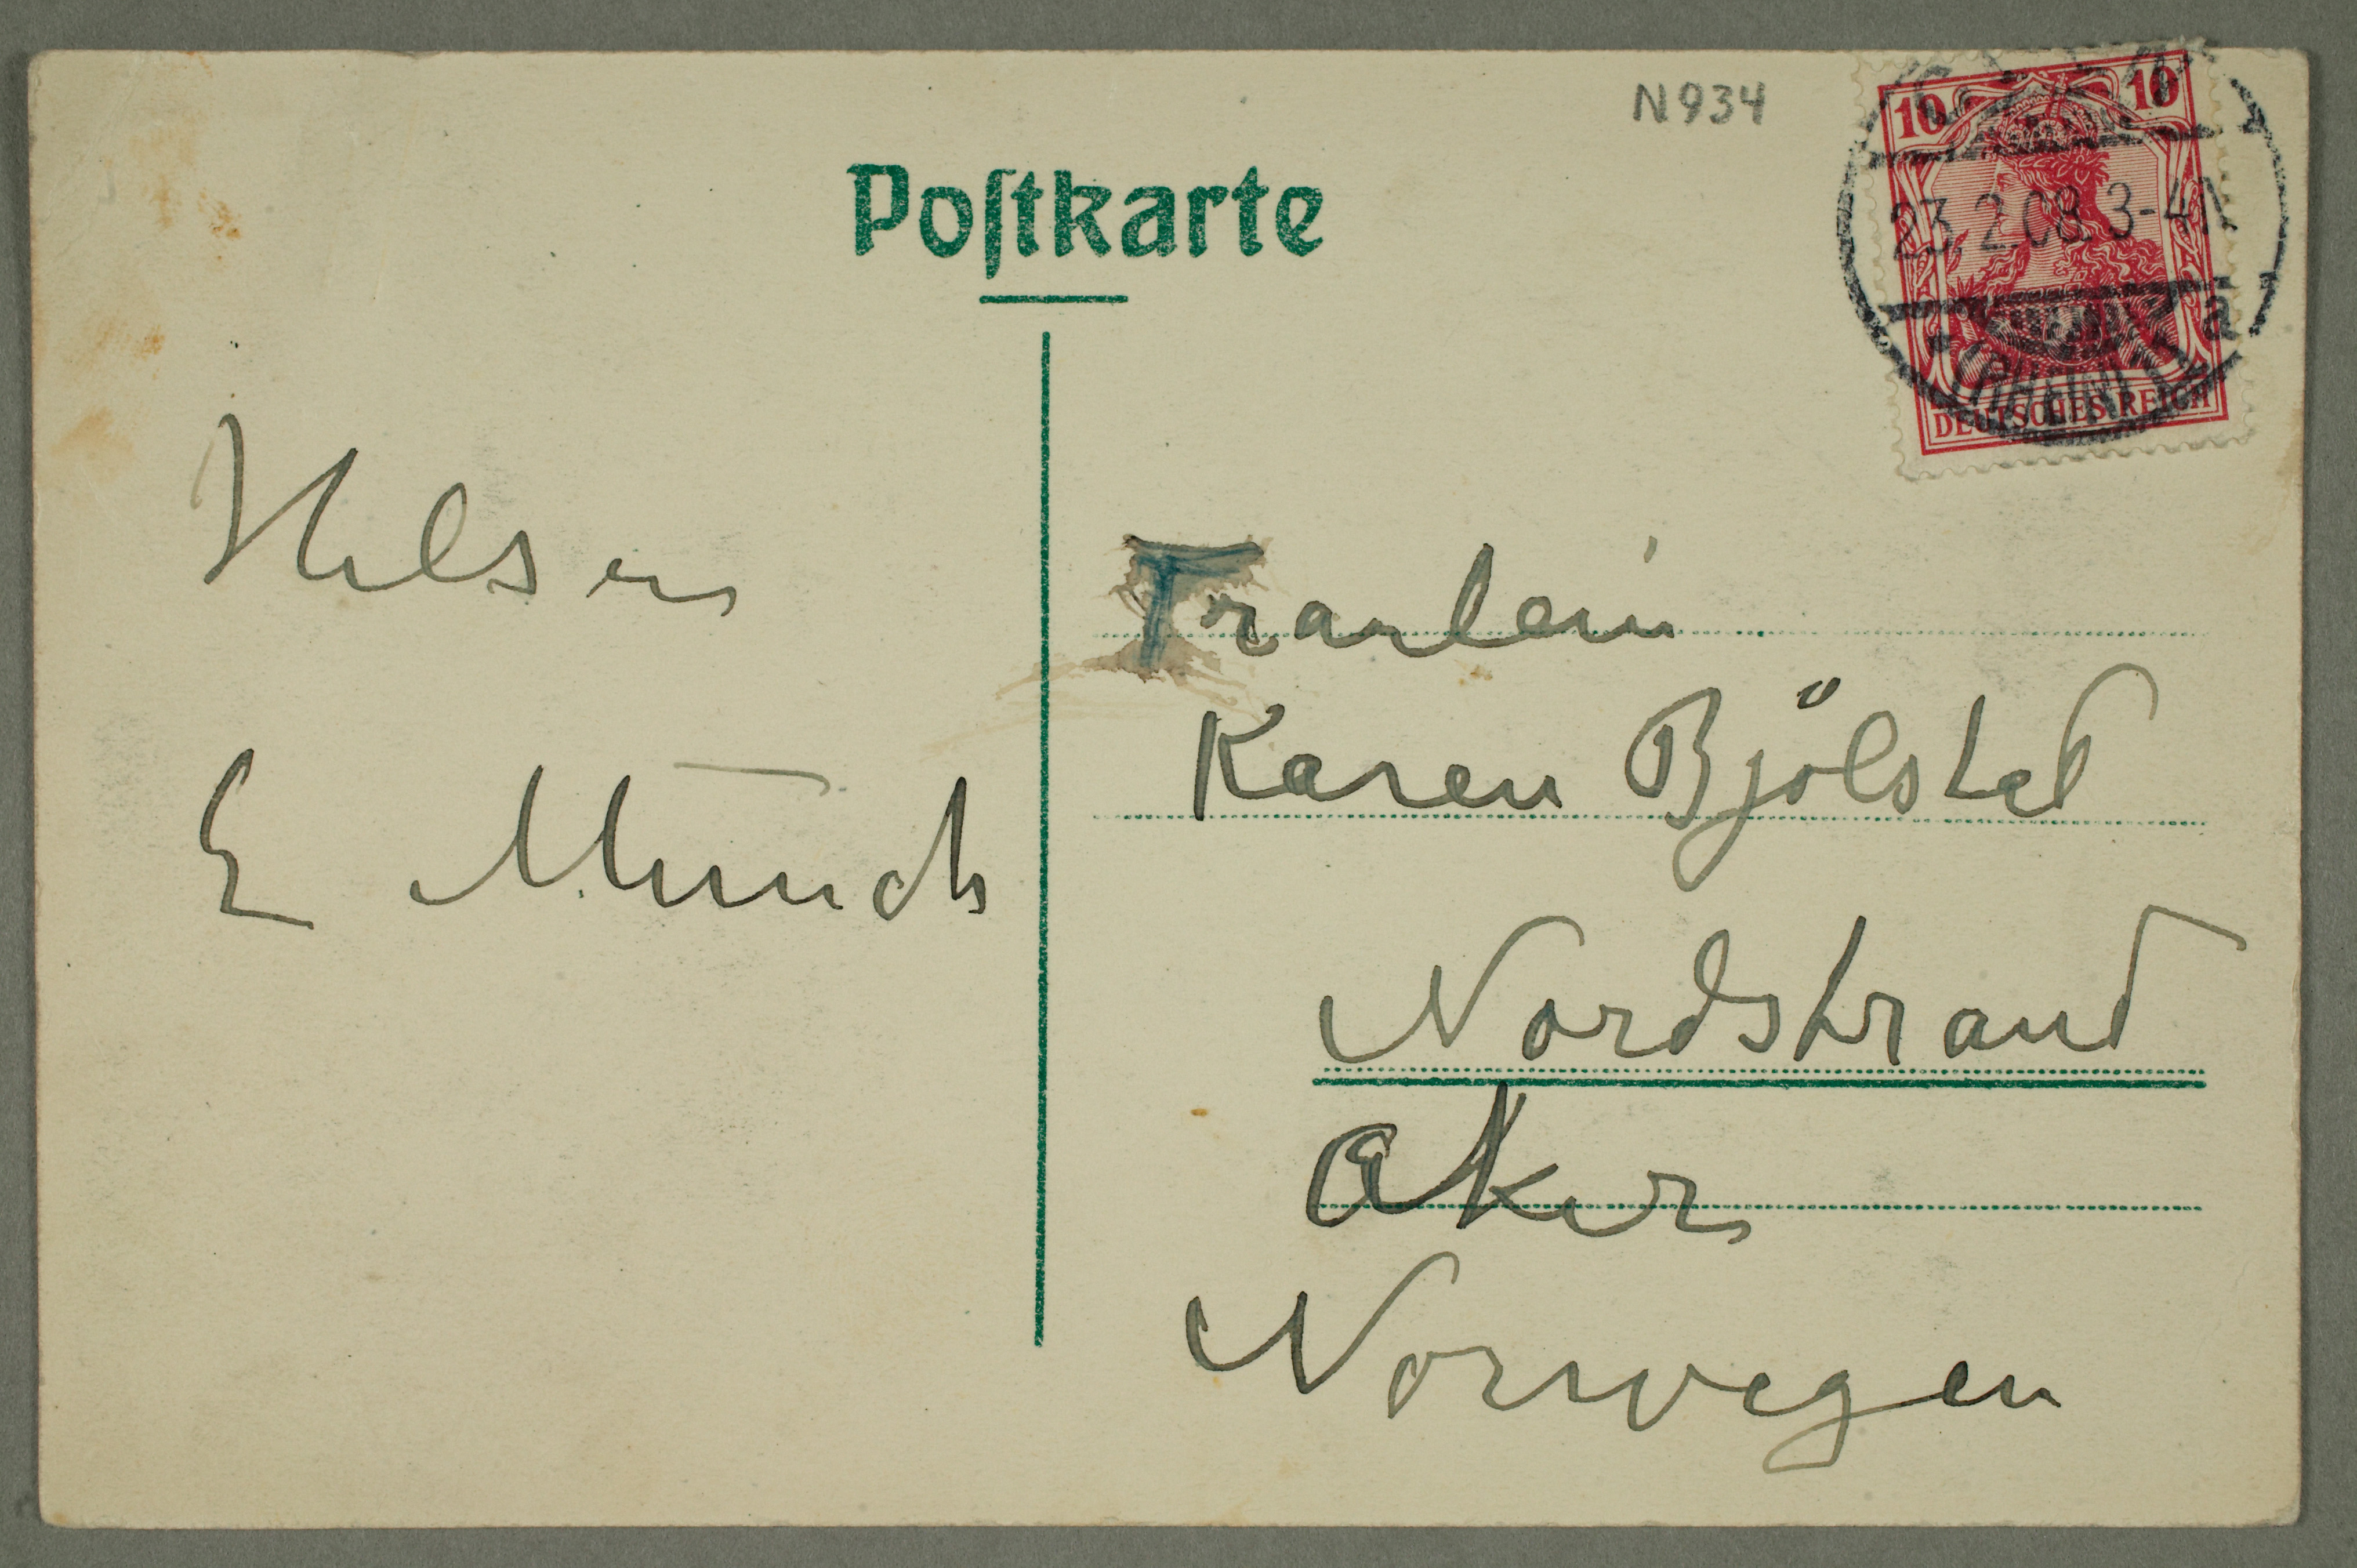 N934
Postkarte
10 10
23.2.08.3-4N
a
(RHEIN)
DEUTSCHES REICH
Hilsen
E Munch
Fraulein
Karen Bjölstad
Nordstrand
Aker
Norwegen